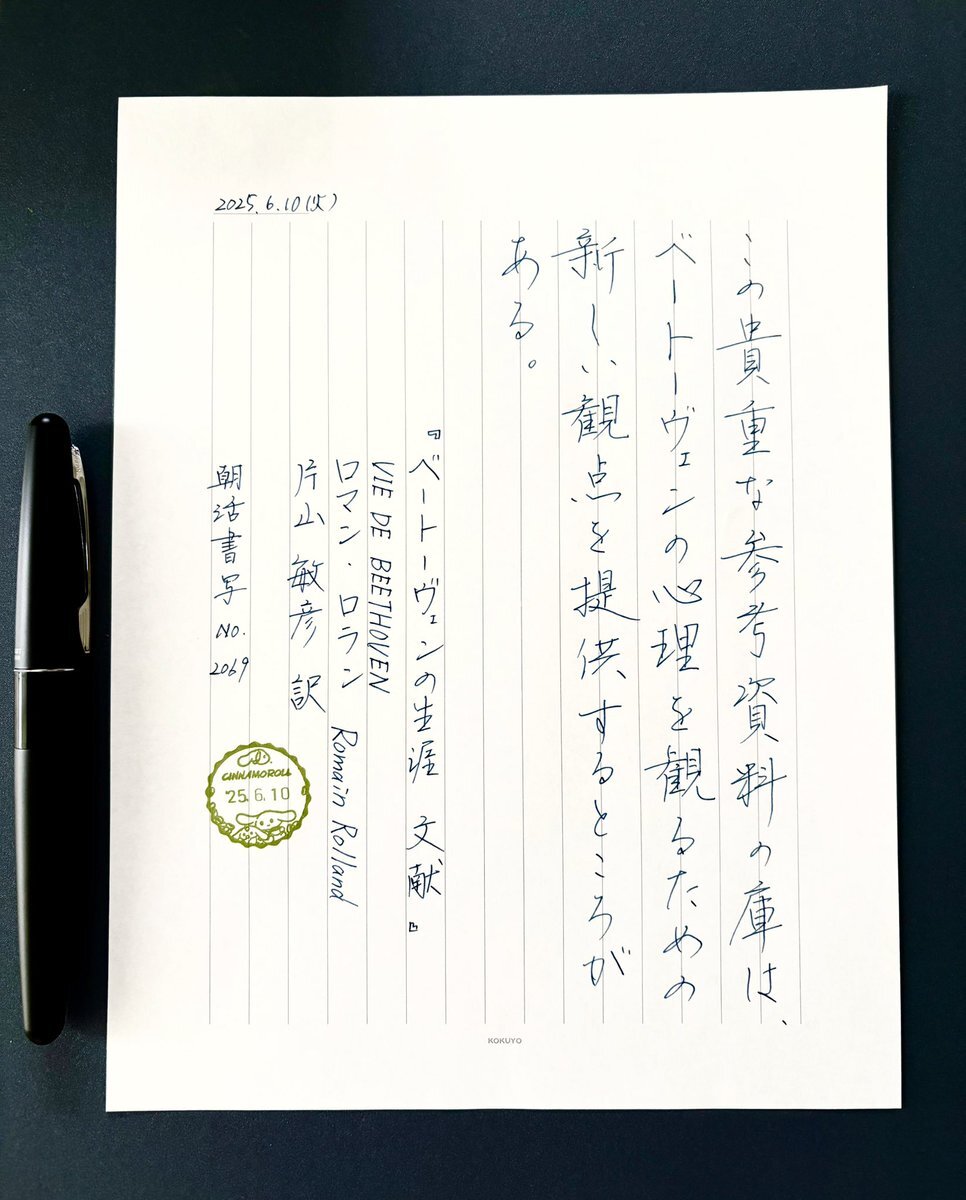 2025.6.10(火)
この貴重な参考資料の庫は、
ベートーヴェンの心理を観るための
新しい観点を提供するところが
ある。
『ベートーヴェンの生涯 文献』
VIE DE BEETHOVEN
ロマン・ロラン Romain Rolland
片山敏彦 訳
朝活書写 No. 2069
CINNAMOROLL
'25.6.10
KOKUYO